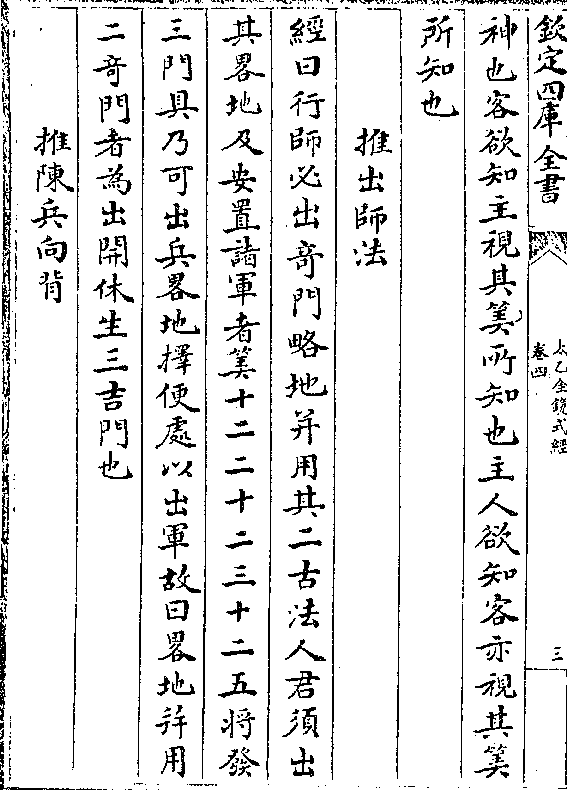 欽定四庫全書
太乙金鏡式經
卷四
三
神也客欲知主視其筭所知也主人欲知客亦視其筭
所知也
推出師法
經曰行師必出竒門略地并用其二古法人君須出
其畧地及安置諸軍者筭十二二十二三十二五将發
三門具乃可出兵畧地擇便處以出軍故曰畧地并用
二竒門者為出開休生三吉門也
推陳兵向背